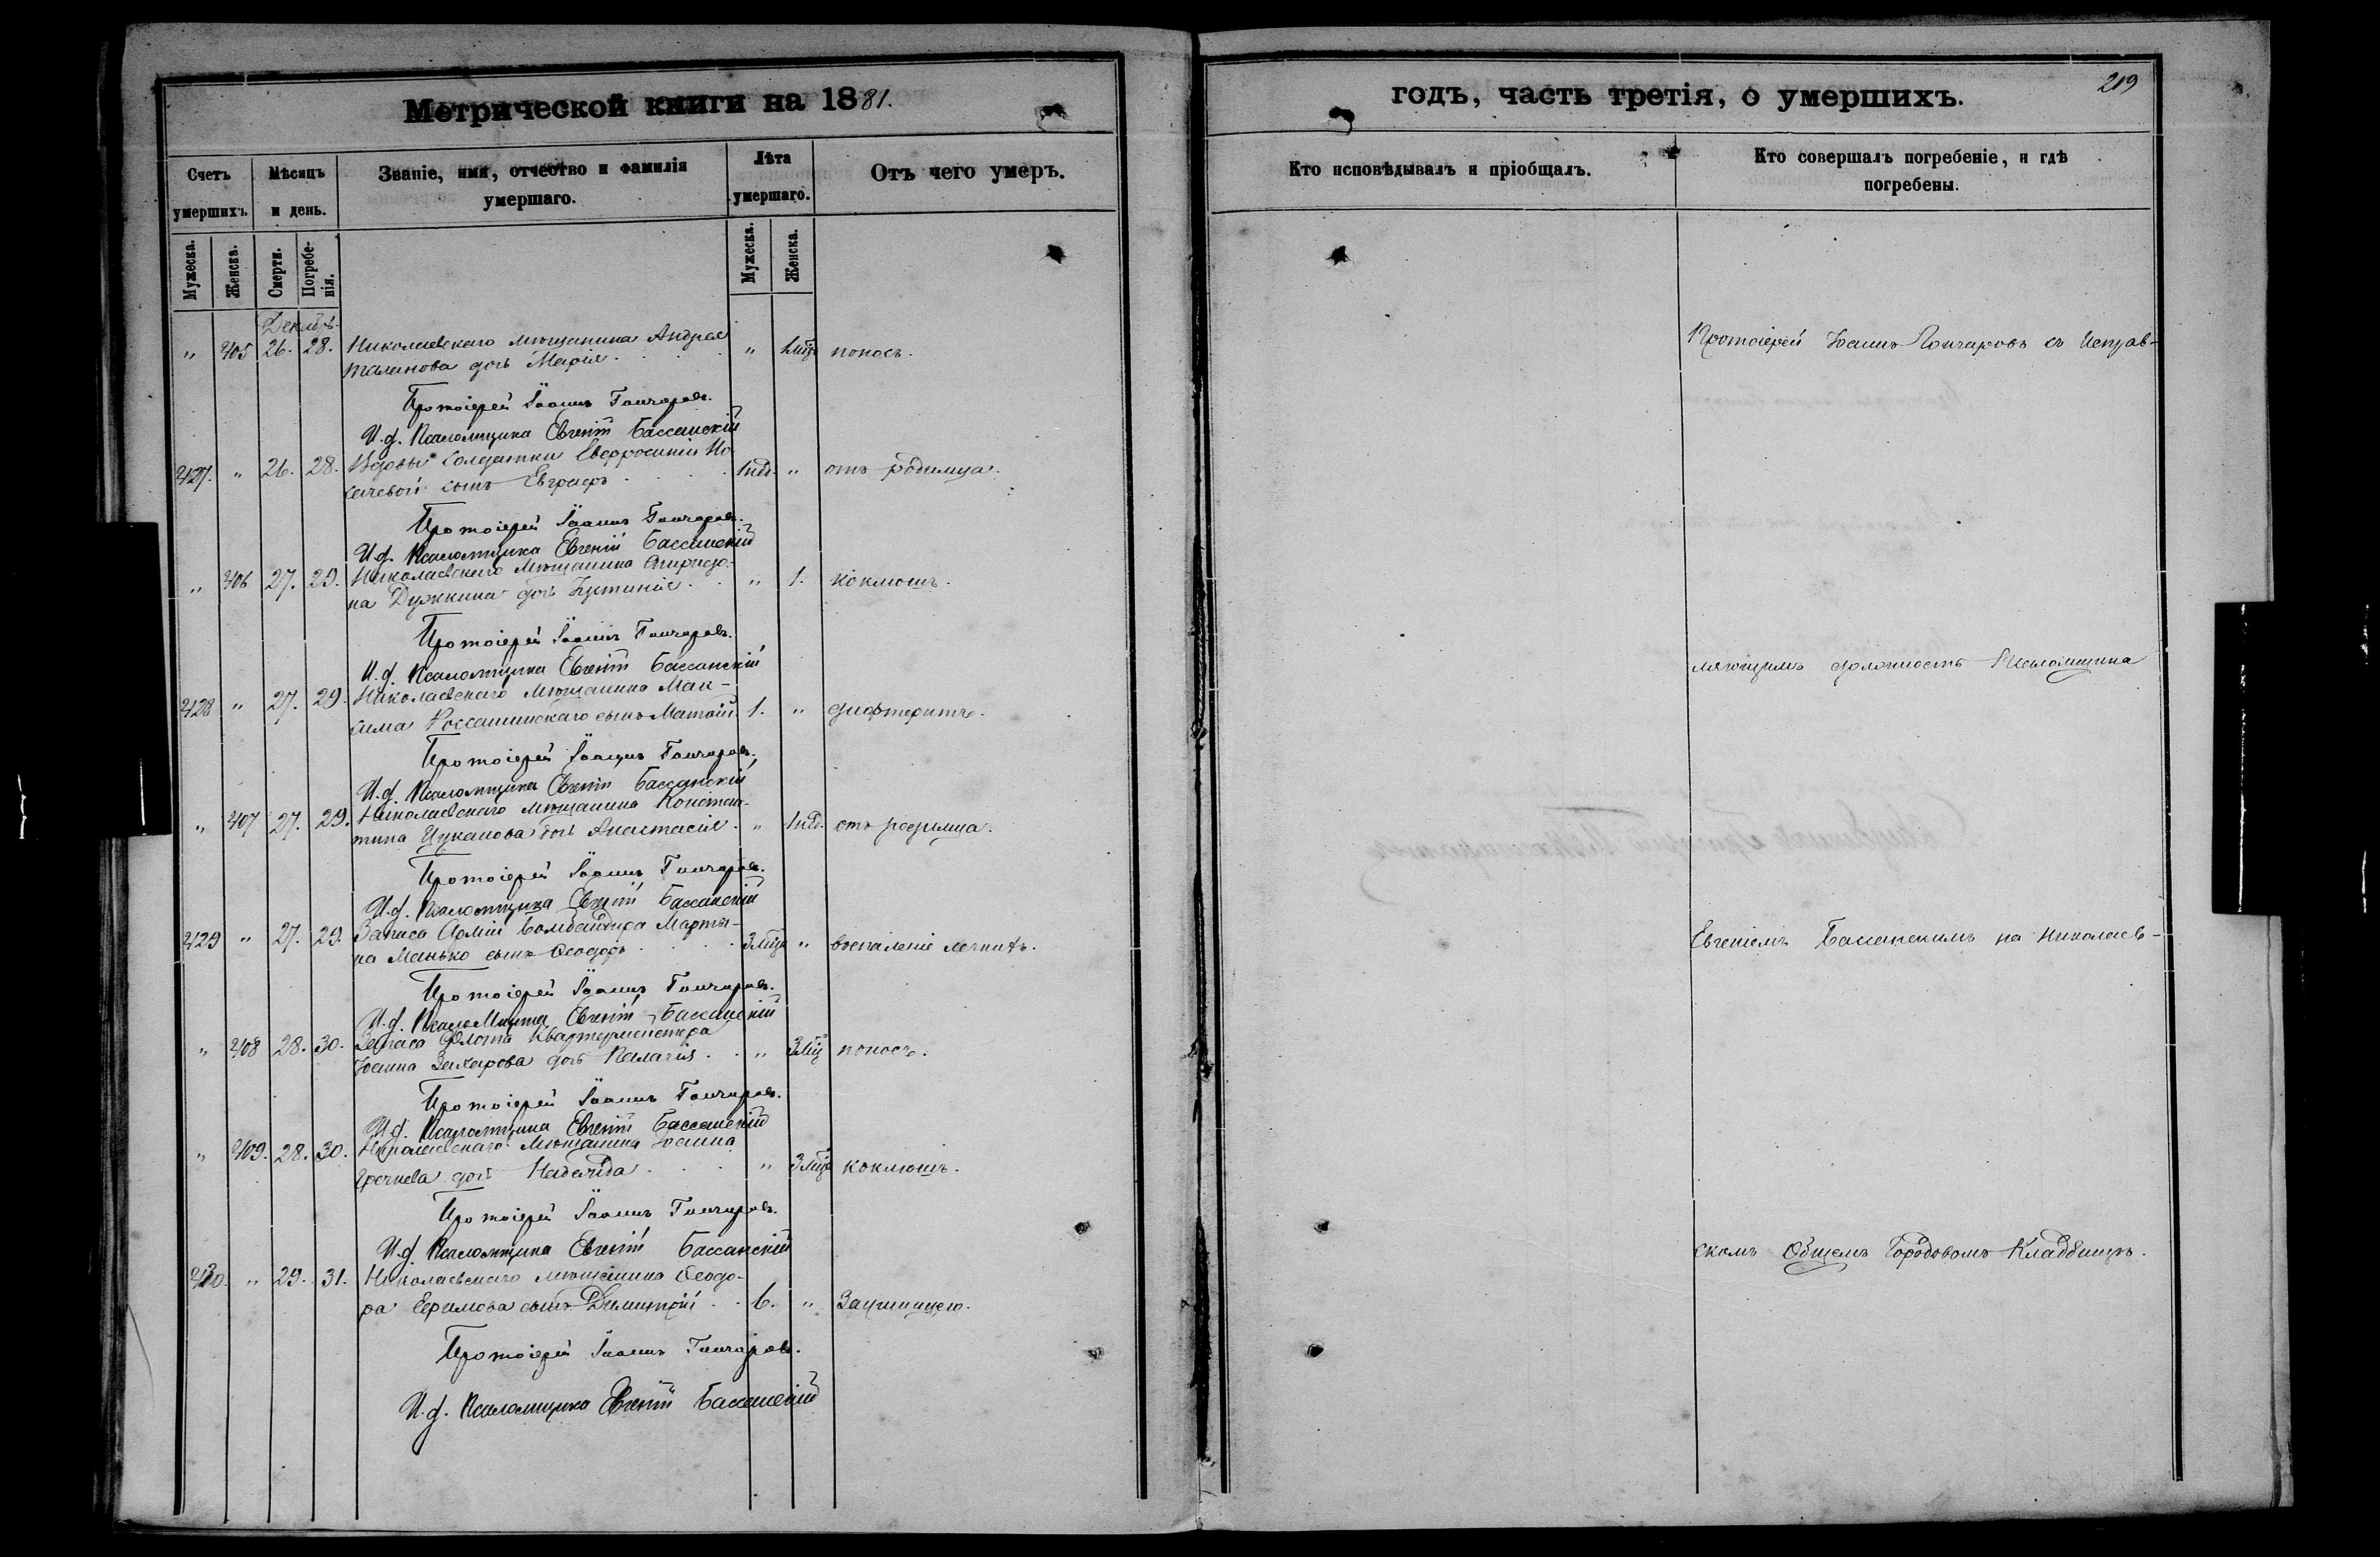 Метрической книги на 1881.
годъ, часть третія, о умершихъ.
219
Счетъ умершихъ. Мѣсяцъ и день. Званіе, имя, отчество и фамилія умершаго. Лѣта умершаго. Отъ чего умеръ.
Кто исповѣдывалъ и пріобщалъ. Кто совершалъ погребеніе, и гдѣ погребены.
Мужеска. Женска. Смерти. Погребенія. Мужеска. Женска.
Декабрь
" 405 26. 28. Николаевскаго мѣщанина Андрея " 1 мѣц поносъ.
Таланова дочь Марія
Протоіерей Іоаннъ Гончаровъ.
И.д. Псаломщика Евгеній Бассанскій
427. " 26. 28. Вдовы Солдатки Евфросиніи Но- 1 нед. " отъ родимца.
сачевой сынъ Евграфъ
Протоіерей Іоаннъ Гончаровъ.
И.д. Псаломщика Евгеній Бассанскій
" 406 27. 29. Николаевскаго Мѣщанина Спиридо- " 1. коклюшъ.
на Дужкина дочь Іустинія
Протоіерей Іоаннъ Гончаровъ.
И.д. Псаломщика Евгеній Бассанскій
428 " 27. 29. Николаевскаго Мѣщанина Мак- 1. " дифтеритъ.
сима Россашинскаго сынъ Матѳій
Протоіерей Іоаннъ Гончаровъ.
И.д. Псаломщика Евгеній Бассанскій
" 407 27. 29. Николаевскаго Мѣщанина Констан- " 1 нед. отъ родимца.
тина Цуканова дочь Анастасія
Протоіерей Іоаннъ Гончаровъ.
И.д. Псаломщика Евгеній Бассанскій
429 " 27. 29. Запаса Арміи Бомбандира Марты- 3 мѣц " воспаленіе легкихъ.
на Манько сынъ Ѳеодоръ
Протоіерей Іоаннъ Гончаровъ.
И.д. Псаломщика Евгеній Бассанскій
" 408 28. 30. Запаса Флота Квартермейстера " 3 мѣц поносъ.
Іоанна Захарова дочь Пелагія
Протоіерей Іоаннъ Гончаровъ.
И.д. Псаломщика Евгеній Бассанскій
" 409. 28. 30. Николаевскаго Мѣщанина Іоанна " 3 мѣц коклюшъ.
дочь Надежда
Протоіерей Іоаннъ Гончаровъ.
И.д. Псаломщика Евгеній Бассанскій
430. " 29. 31. Николаевскаго мѣщанина Ѳеодо- 6. "
ра Ефимова сынъ Димитрій
Протоіерей Іоаннъ Гончаровъ.
И.д. Псаломщика Евгеній Бассанскій
Протоіерей Іоаннъ Гончаровъ съ Исправ-
ляющимъ должность Псаломщика
Евгеніемъ Бассанскимъ на Николаев-
скомъ Общемъ Городовомъ Кладбищѣ.